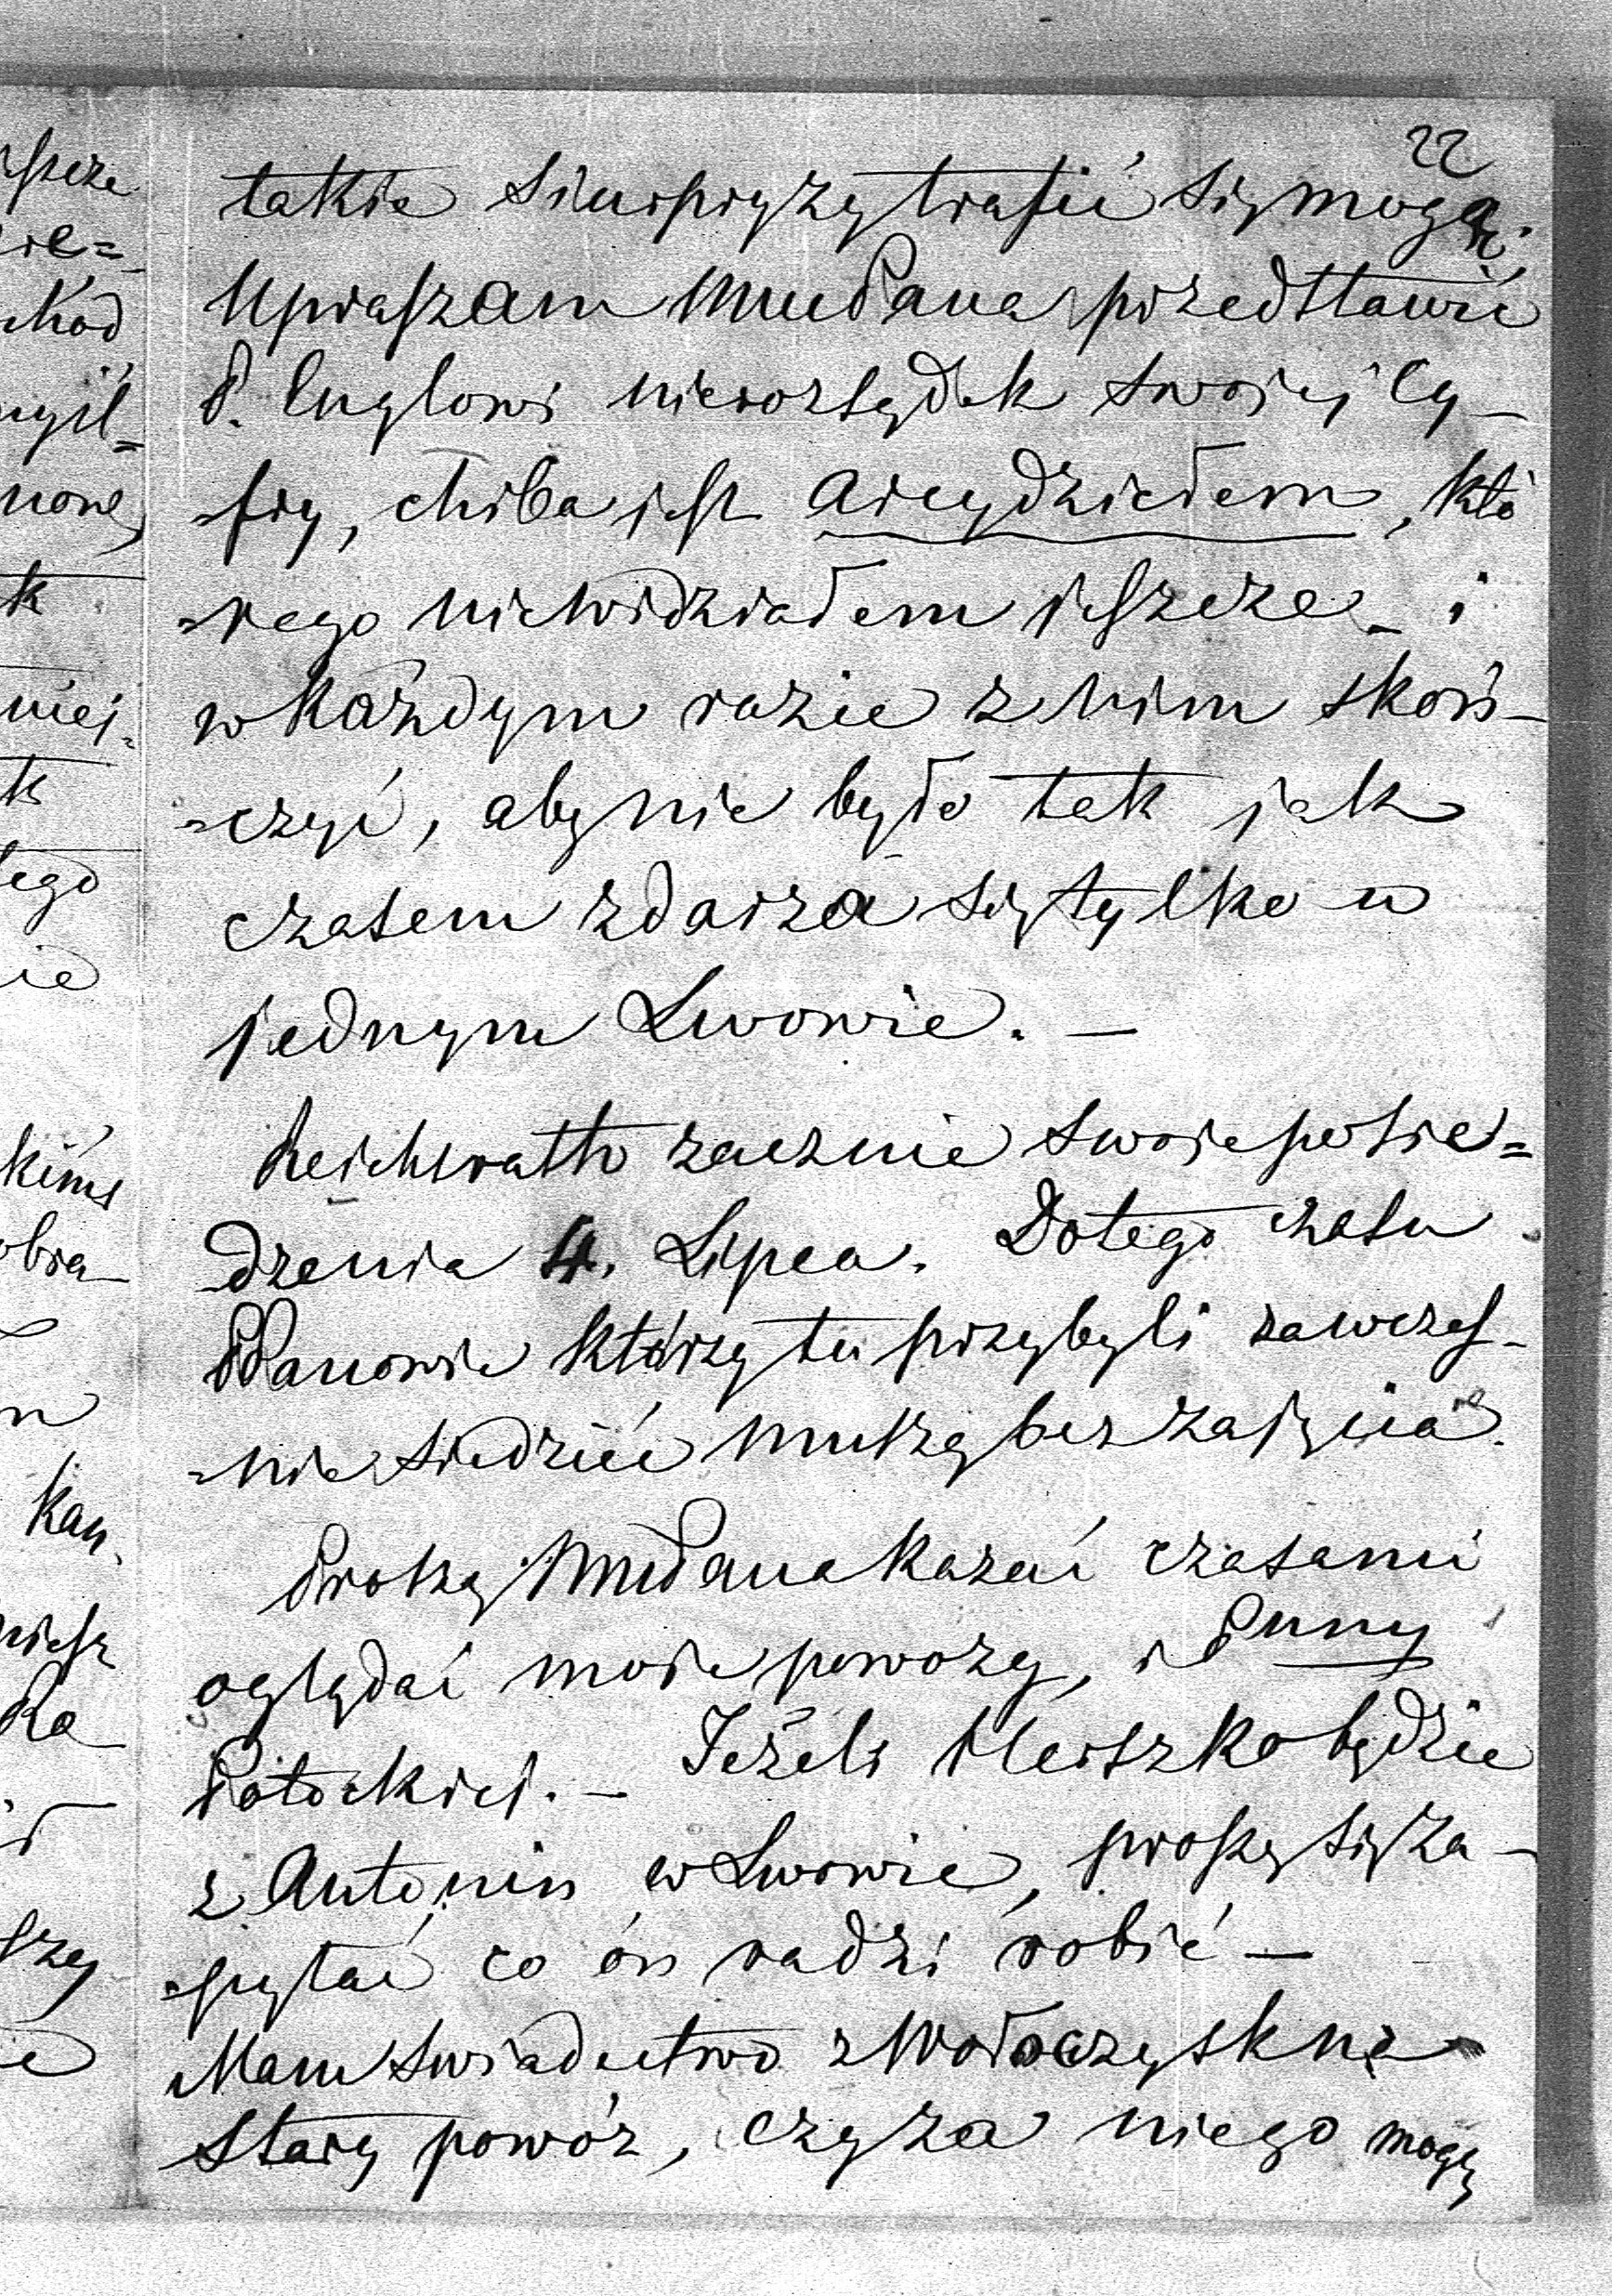 22
takie siurpryzy trafić się mogą.
Upraszam WMPana przedstawić
P. Englowi nierozsądek swojej cy-
-fry, chiba jest arcydziełem, któ
-rego niewidziałem jeszcze – i
w każdym razie z nim skoń-
-czyć, aby nie było tak jak
czasem zdarza się tylko w
jednym Lwowie. –
Reichsrath zacznie swoje posie=
-dzenia 4. Lipca. Do tego czasu
Panowie którzy tu przybyli zawcześ-
-nie siedzieć muszą bez zajęcia.
Proszę WMPana kazać czasami
oglądać moje powozy, i Puny
Potockiej. – Jeżeli Meiszko będzie
z Antonin w Lwowie, proszę się za-
-pytać co ón radzi robić –
Mam świadectwo z Wołoczysk na
stary powóz, czy za niego mogę